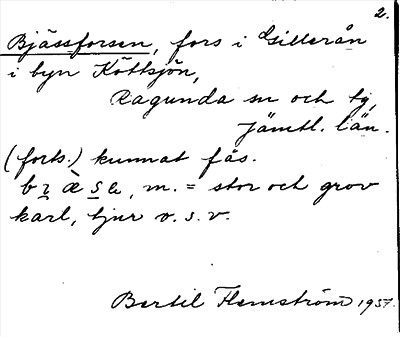 2.
Bjässforsen, fors i Gillerån
i byn Köttsjön,
Ragunda sn och tg,
Jämtl. län.
(forts.) kunnat fås.
m. = stor och grov
karl, tjur o.s.v.
Bertil Flemström 1957.